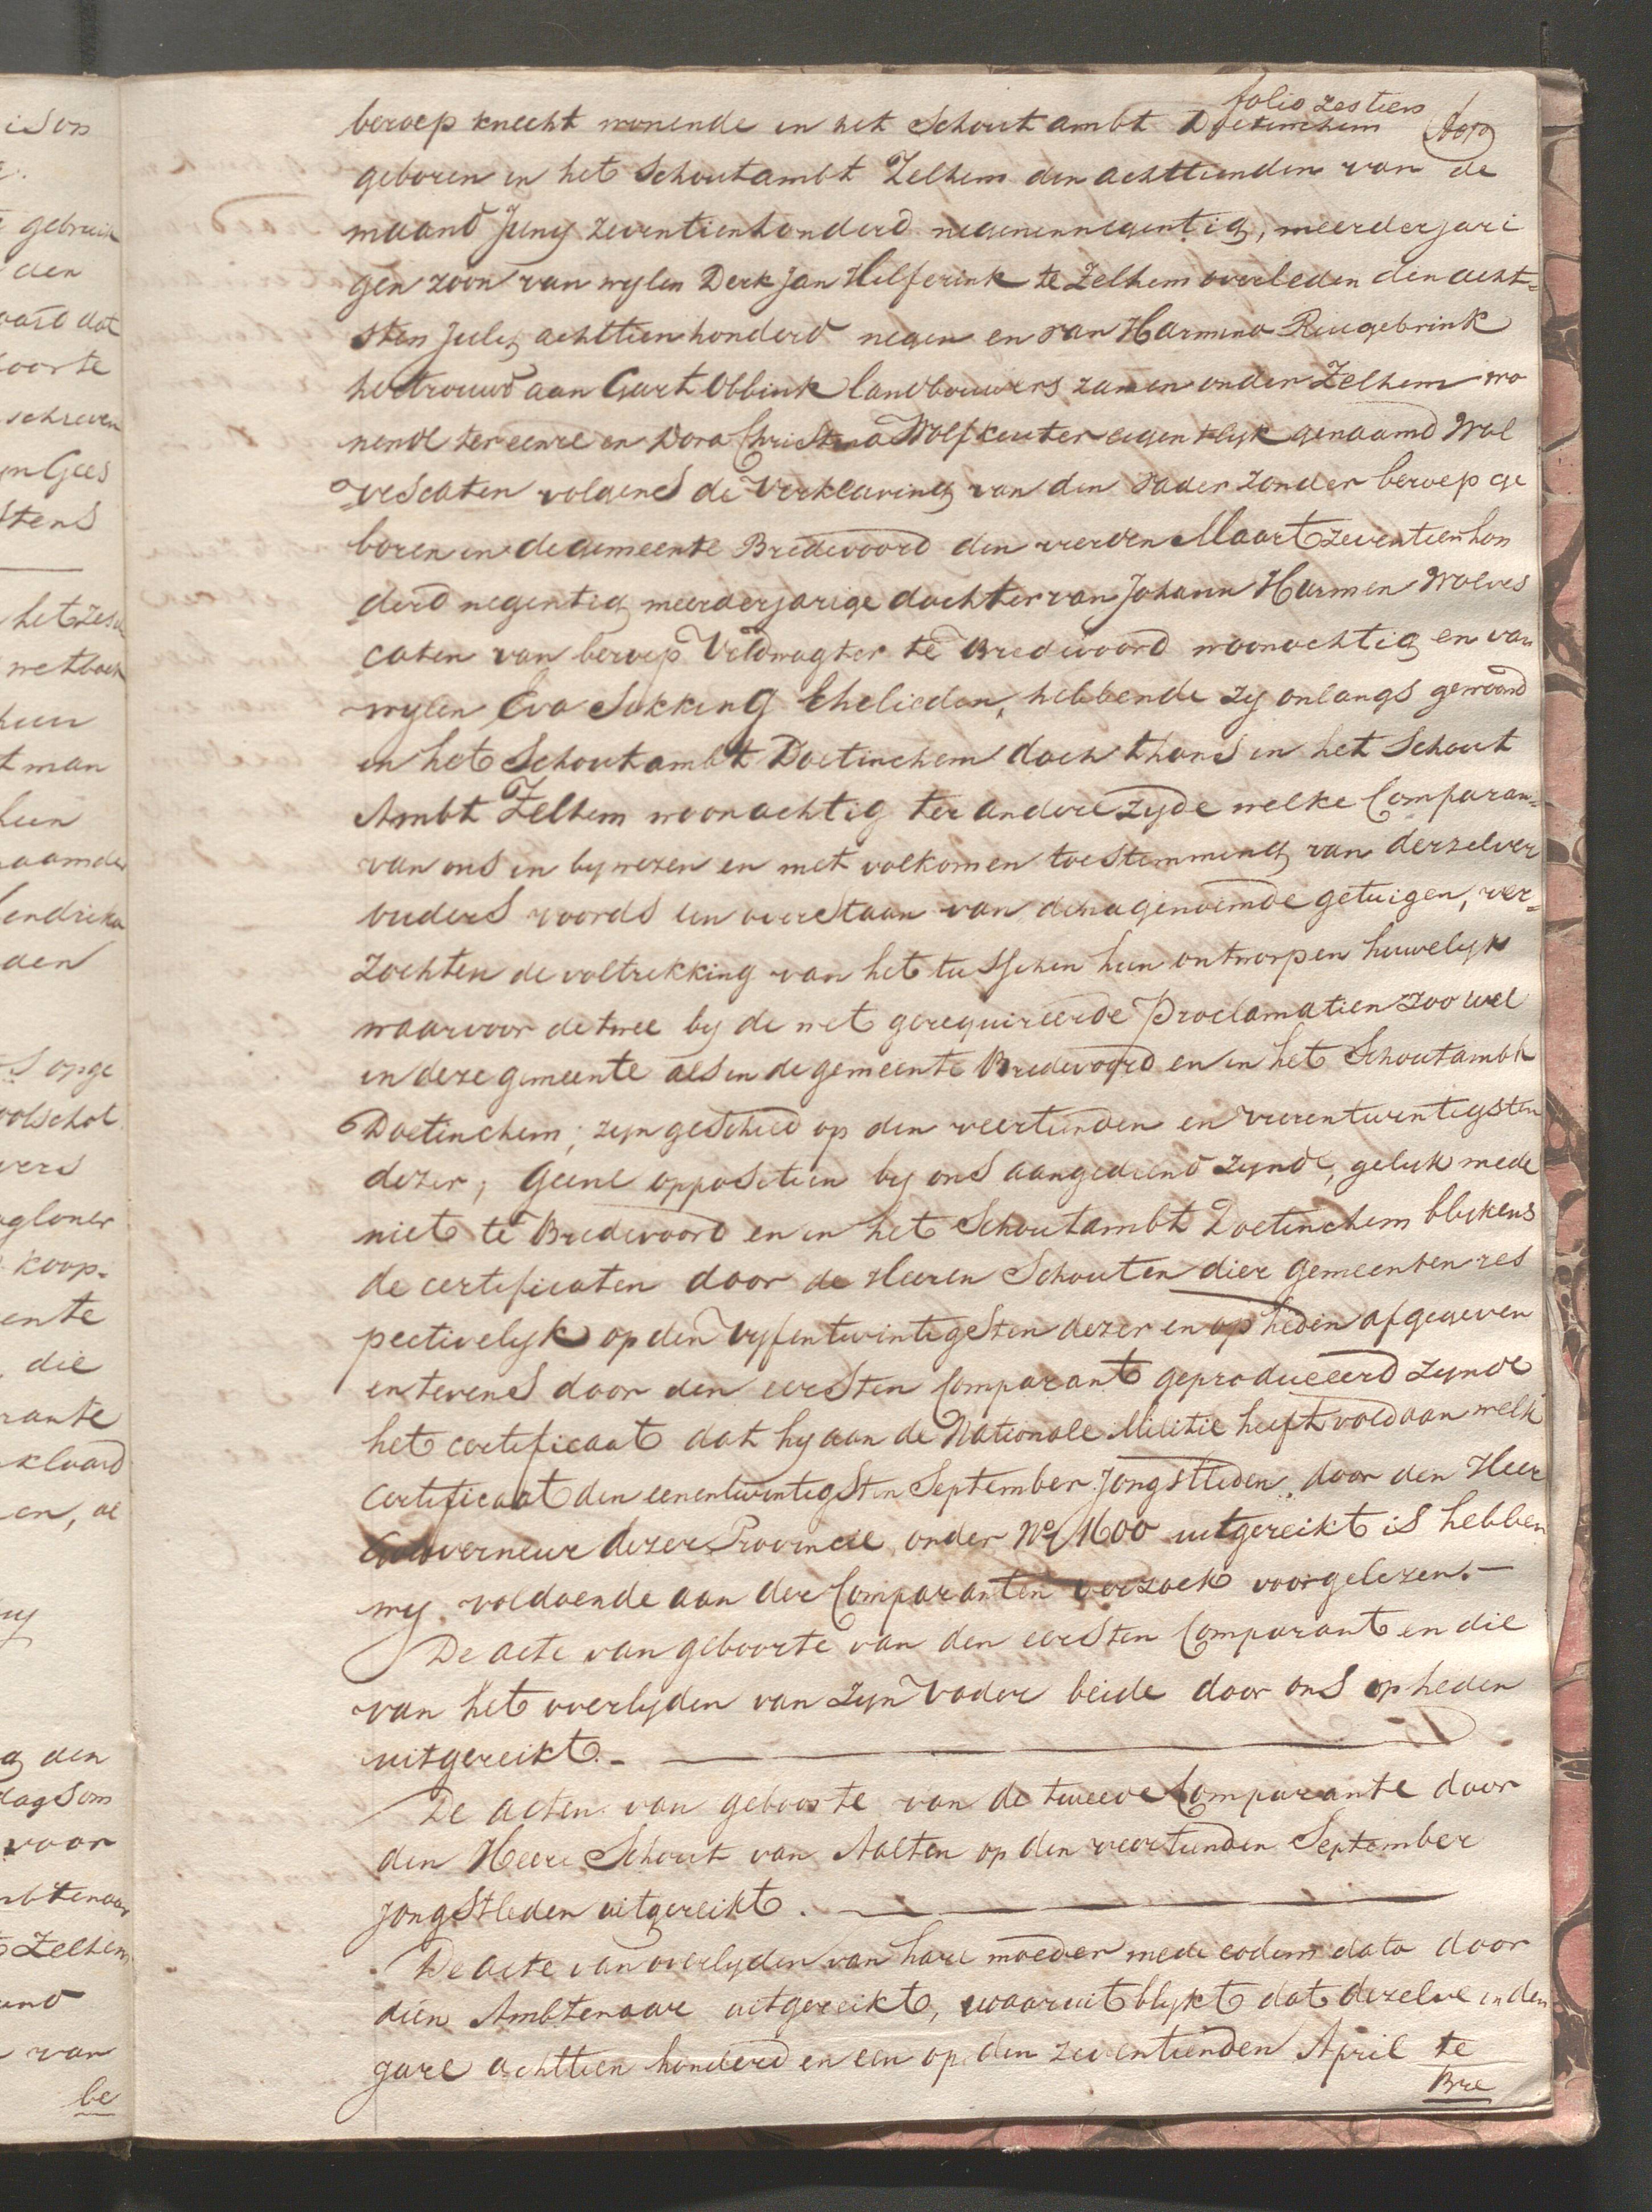 folio zestien
beroep knecht wonende in het Schoutambt Doetinchem
geboren in het Schoutambt Zelhem den achttienden van de
maand Juny zeventienhonderd negenennegentig, meerderjari
gen zoon van wylen Derk Jan Hilferink te Zelhem overleden den acht=
sten July achttienhonderd negen en van Harmina Ruugebrink
hertrouwd aan Gart Obbink landbouwers zamen onder Zelhem wo
nende ter eenre en Dora Christina Wolfkenter eigentlyk genaamd Wol
vescaten volgens de Verklaring van den Vader zonder beroep ge
boren in de gemeente Bredevoord den vierden Maart zeventienhon
derd negentig meerderjarige dochter van Johann Harmen Wolves
caten van beroep Veldwagter te Bredevoord woonachtig en van
wylen Eva Sikking Ehelieden, hebbende zy onlangs gewoond
in het Schoutambt Doetinchem doch thans in het Schout
Ambt Zelhem woonachtig ter andere zyde welke Comparan=
van ons in bywezen en met volkomen toestemming van derzelver
ouders voords ten overstaan van de nagenoemde getuigen, ver=
zochten de voltrekking van het tusschen hun ontworpen huwelyk
waarvoor de twee by de wet gerequireerde Proclamatien zoo wel
in deze gemeente als in de gemeente Bredevoord en in het Schoutambt
Doetinchem; zyn geschied op den veertienden en vierentwintigsten
dezer, geene oppositien by ons aangediend zynde, gelyk mede
niet te Bredevoord en in het Schoutambt Doetinchem blykens
de certificaten door de Heeren Schouten dier gemeenten res
pectivelyk op den Vyfentwintigsten dezer en op heden afgegeven
en tevens door den eersten Comparant geproduceerd zynde
het certificaat dat hy aan de Nationale Militie heeft voldaan welk
Certificaat den eenentwintigsten September Jongstleden, door den Heer
Gouverneur dezer Provincie onder No 1600 uitgereikt is hebben
wy voldoende aan der Comparanten verzoek voorgelezen.—
De acte van geboorte van den eersten Comparant en die
van het overlyden van zyn Vader beide door ons op heden
uitgereikt.—
De acten van geboorte van de tweede Comparante door
den Heere Schout van Aalten op den veertienden September
jongstleden uitgereikt.
De acte van overlyden van hare moeder mede eodem dato door
dien Ambtenaar uitgereikt, waaruit blykt dat dezelve in den
jare achttien honderd en een op den zeventienden April te
Bre